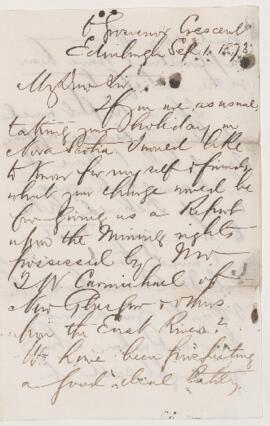 6 Grosvenor Crescent
Edinburgh Sep 1. 1873
My Dear Sir
If you are, as usual,
taking your holiday in
Nova Scotia I would like
to know for myself & friends
what your charge would be
for giving us a Report
upon the Mining rights
possessed by Mr
J W Carmichael of
New Glasgow & others
upon the East River?
We have been prospecting
a good deal lately,